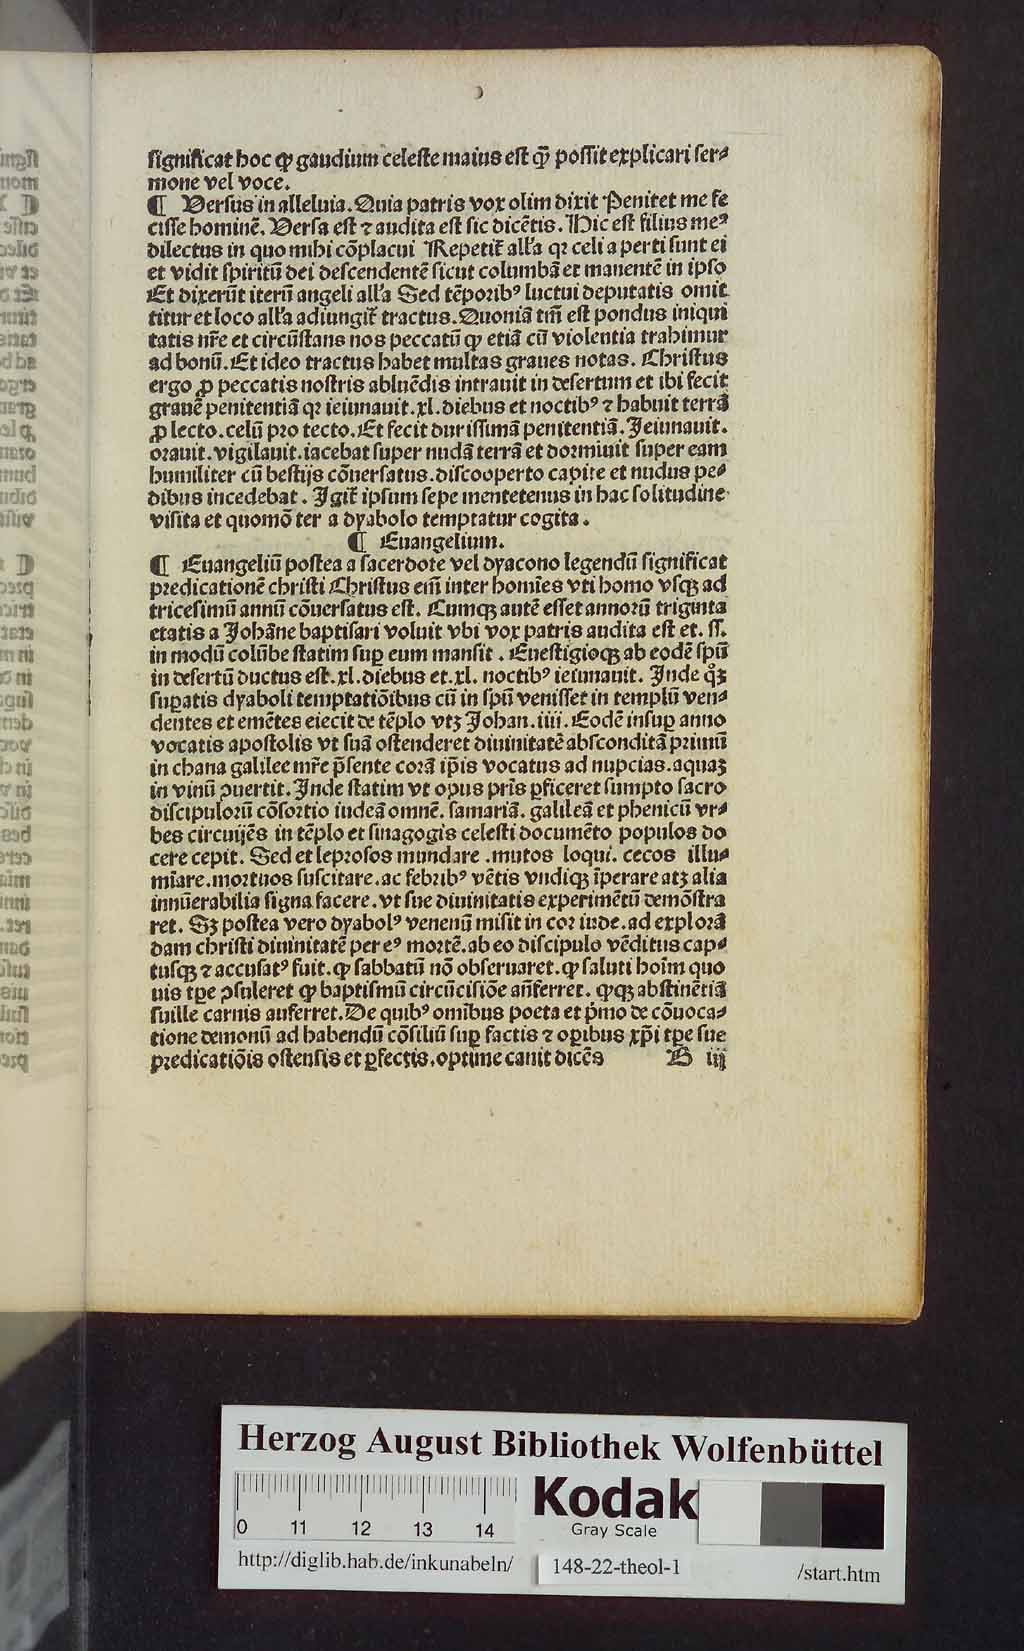 significat hoc qɔ gaudium celeste maius est q̄ȝ possit explicari ser⸗
mone vel voce.
¶ Versus in alleluia. Quia patris vox olim dixit Penitet me fe
cisse hominē. Versa est ⁊ audita est sic dicētis. Hic est filius meꝰ
dilectus in quo mihi cōplacui Repetit̄ all'a qꝛ celi a perti sunt ei
et vidit spiritū dei descendentē sicut columbā et manentē in ipso
Et dixerūt iterū angeli all'a Sed tēporibꝰ luctui deputatis omit
titur et loco all'a adiungit̄ tractus. Quoniā tm̄ est pondus iniqui
tatis nr̄e et circūstans nos peccatū qɔ etiā cū violentia trahimur
ad bonū. Et ideo tractus habet multas graues notas. Christus
ergo ꝓ peccatis nostris abluēdis intrauit in desertum et ibi fecit
grauē penitentiā qꝛ ieiunauit. xl. diebus et noctibꝰ ⁊ habuit terrā
ꝓ lecto. celū pro tecto. Et fecit dur issimā penitentiā. Jeiunauit.
orauit. vigilauit. iacebat super nudā terrā et dormiuit super eam
humiliter cū bestijs cōuersatus. discooperto capite et nudus pe⸗
dibus incedebat. Jgit̄ ipsum sepe mentetenus in hac solitudine
visita et quomō ter a dyabolo temptatur cogita.
¶ Euangelium.
¶ Euangeliū postea a sacerdote vel dyacono legendū significat
predicationē christi Christus em̄ inter homīes vti homo vsqȝ ad
tricesimū annū cōuersatus est. Cumqȝ autē esset annorū triginta
etatis a Johāne baptisari voluit vbi vox patris audita est et. ss.
in modū colūbe statim suꝑ eum mansit. Euestigioqȝ ab eodē spū
in desertū ductus est. xl. diebus et. xl. noctibꝰ ieiunauit. Jnde qͦȝ
suꝑatis dyaboli temptatiōibus cū in spū venisset in templū ven⸗
dentes et emētes eiecit de tēplo vtȝ Johan. iiii. Eodē insuꝑ anno
vocatis apostolis vt suā ostenderet diuinitatē absconditā primū
in chana galilee mr̄e p̄sente corā ip̄is vocatus ad nupcias. aquaȝ
in vinū ꝯuertit. Jnde statim vt opus pris ꝑficeret sumpto sacro
discipulorū cōsortio iudeā omnē. samariā. galileā et phenicū vr⸗
bes circuijēs in tēplo et sinagogis celesti documēto populos do
cere cepit. Sed et leprosos mundare. mutos loqui. cecos illu⸗
mīare. mortuos suscitare. ac febribꝰ vētis vndiqȝ īperare atȝ alia
innūerabilia signa facere. vt sue diuinitatis experimētū demōstra
ret. Sȝ postea vero dyabolꝰ venenū misit in cor iude. ad explorā
dam christi diuinitatē per eꝰ mortē. ab eo discipulo vēditus cap⸗
tusqȝ ⁊ accusatꝰ fuit. qɔ sabbatū nō obseruaret. qɔ saluti hoīm quo
uis tꝑe ꝯsuleret qɔ baptismū circūcisiōe an̄ferret. qɔqȝ abstinētiā
suille carnis auferret. De quibꝰ omībus poeta et pͥmo de cōuoca⸗
tione demonū ad habendū cōsiliū suꝑ factis ⁊ oꝑibus xp̄i tꝑe sue
predicatiōis ostensis et ꝑfectis. optime canit dicēs B iij
Herzog August Bibliothek Wolfenbüttel
Kodak
Gray Scale
0 11 12 13 14
http://diglib.hab.de/inkunabeln/ 148-22-theol-1 /start.htm